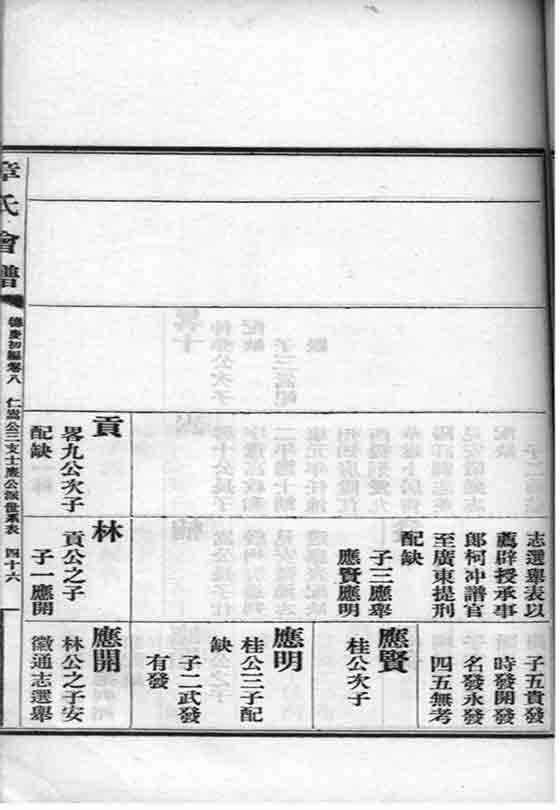 貢
畧九公次子
配缺
志選舉表以
薦辟授承事
郎柯冲譜官
至廣東提刑
配缺
子三應舉
應賢應明
林
貢公之子
子一應開
子五貴發
時發開發
名發永發
四五無考
應賢
桂公次子
應明
桂公三子配
缺
子二武發
有發
應開
林公之子安
徽通志選舉
章氏會譜 德慶初編卷八 仁嵩公三支士公派世系表 四十六